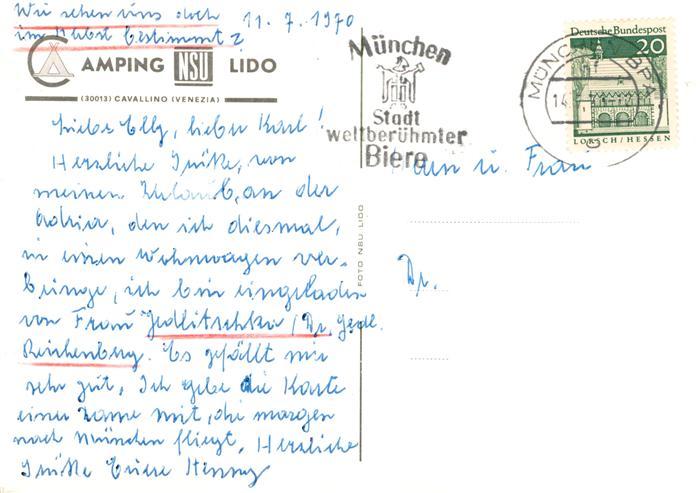 Wir sehen uns doch 11.7.1970
im Herbst bestimmt?
CAMPING NSU LIDO
(30013) CAVALLINO (VENEZIA)
Liebe Elly, lieber Karl!
Herzliche Grüße, von
meinen Urlaub, an der
Adria, den ich diesmal,
in einen Wohnwagen ver-
bringe, ich bin eingeladen
von Frau Jedlitschka / Dr. Jedl.
Reichenberg. Es gefällt mir
sehr gut, Ich gebe die Karte
einer Dame mit, die morgen
nach München fliegt. Herzliche
Grüße Eurer Henny
FOTO NSU. LIDO
München
Stadt
weltberühmter
Biere
MÜNCHEN BPA
Deutsche Bundespost
20
LORSCH/HESSEN
u. Frau
Dr.